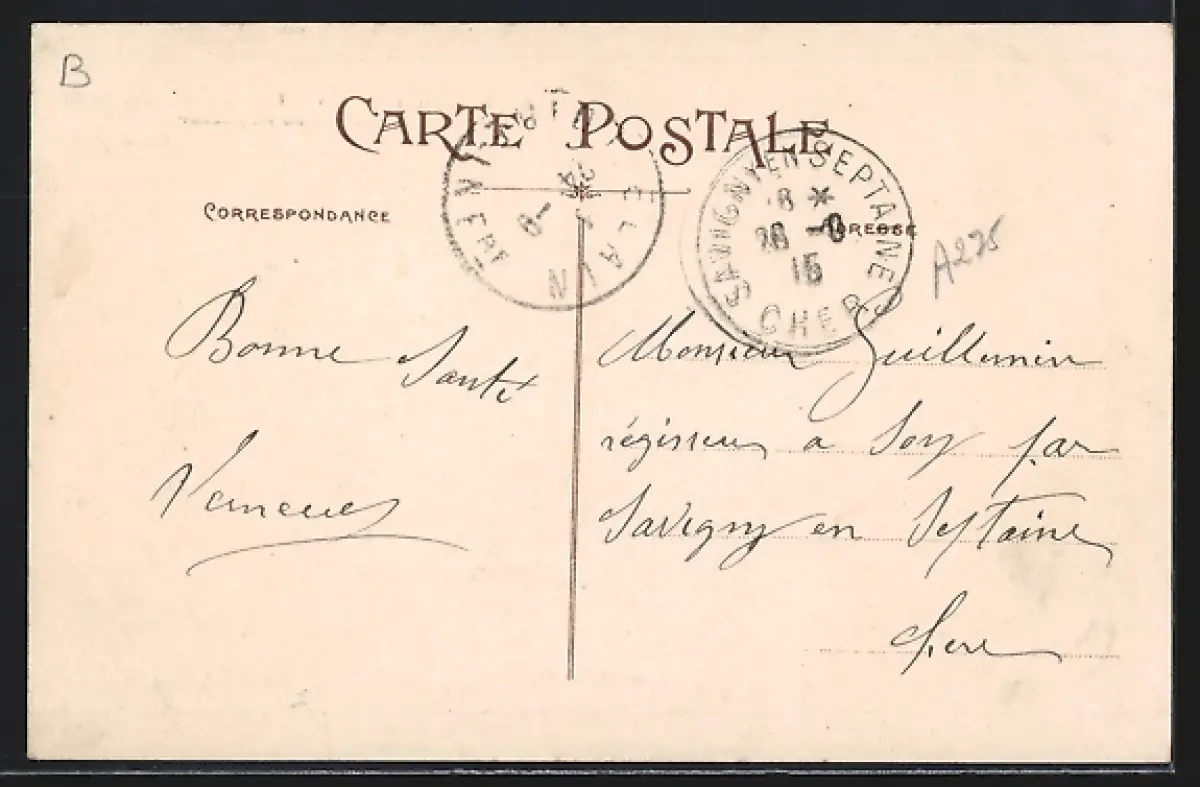 B
CARTE POSTALE
CORRESPONDANCE
ADRESSE
SAVIGNY EN SEPTAINE
8 *
15
CHER
A275
Bonne Santé
Monsieur Guillemin
régisseur a Soy par
Savigny en Septaine
Cher